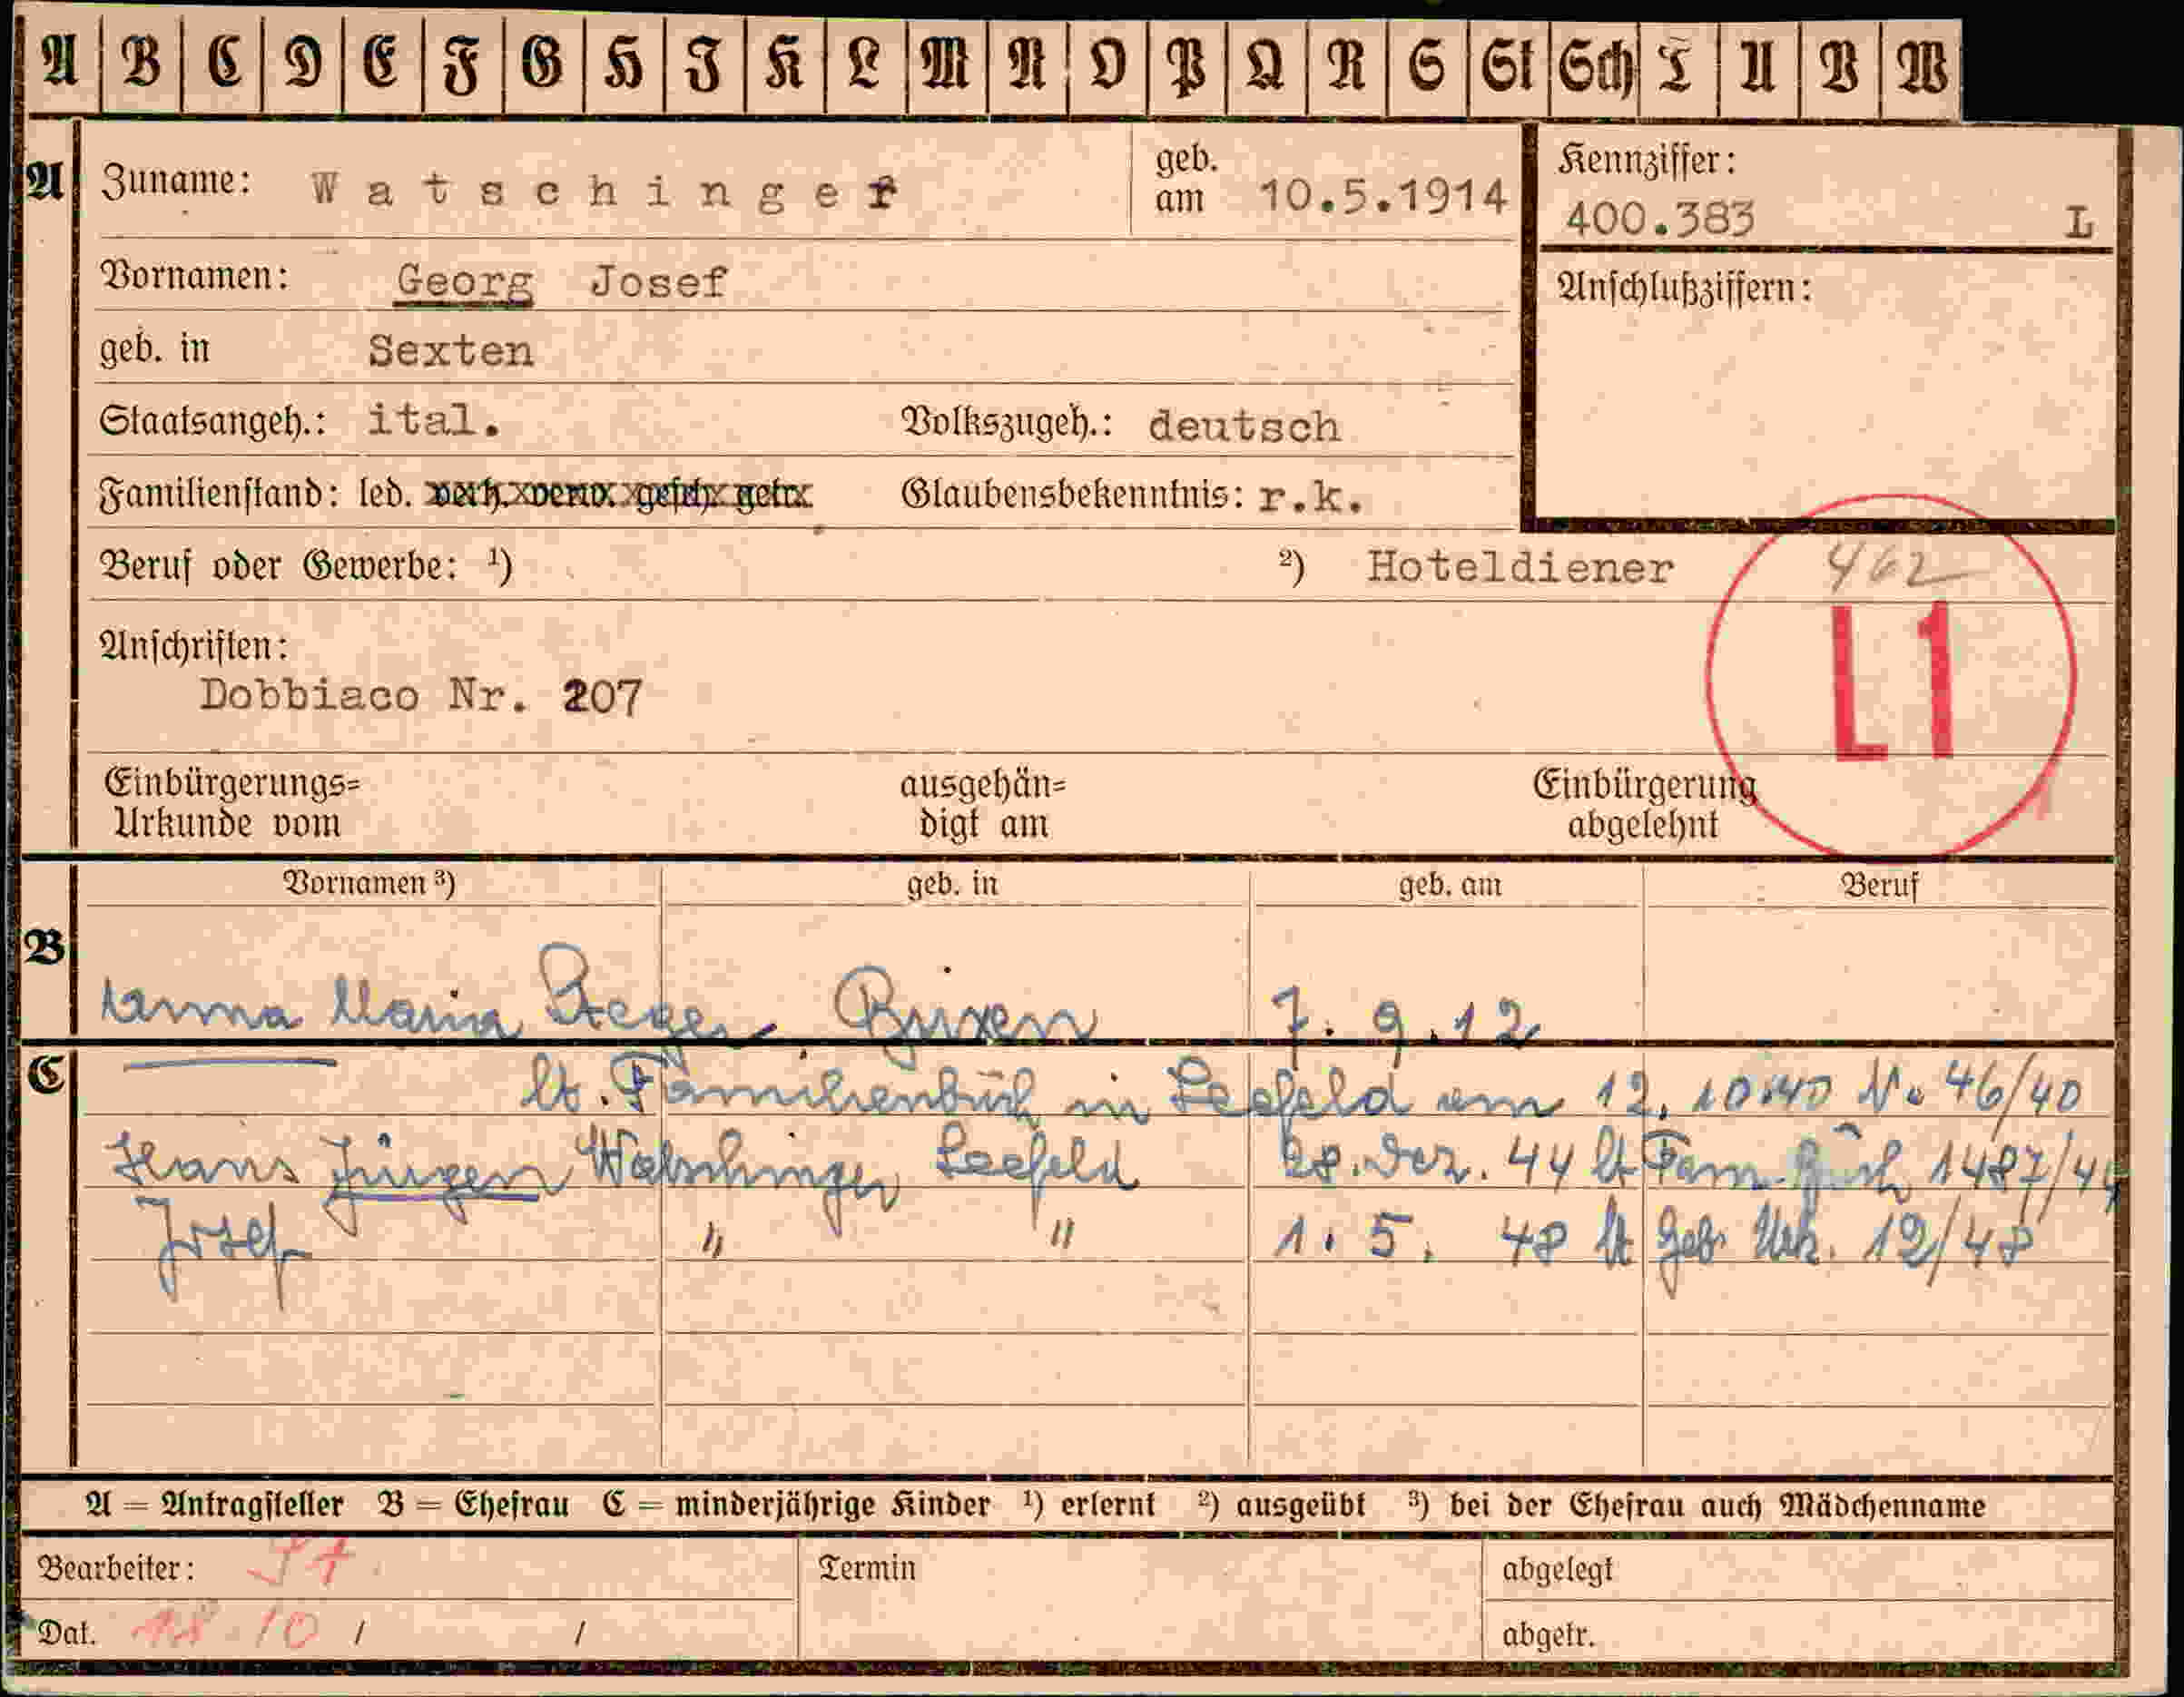 A B C D E F G H I K L M N O P Q R S St Sch T U V W
A Zuname: Watschinger geb. am 10.5.1914 Kennziffer:
400.383 L
Vornamen: Georg Josef Anschlußziffern:
geb. in Sexten
Staatsangeh.: ital. Volkszugeh.: deutsch
Familienstand: led. verh. verw. gesch. getr. Glaubensbekenntnis: r.k.
Beruf oder Gewerbe: ¹) ²) Hoteldiener 462
L1
Anschriften:
Dobbiaco Nr. 207
Einbürgerungs= ausgehän= Einbürgerung
Urkunde vom digt am abgelehnt
Vornamen ³) geb. in geb. am Beruf
B
Anna Maria Steger Brixen 7. 9. 12
C
lt. Familienbuch in Seefeld am 12. 10.40 No 46/40
Hans Jürgen Watschinger Seefeld 28. Dez. 44 lt Fam. Buch 1487/44
Josef " " 1. 5. 48 lt Geb. Urk. 12/48
A = Antragsteller B = Ehefrau C = minderjährige Kinder ¹) erlernt ²) ausgeübt ³) bei der Ehefrau auch Mädchenname
Bearbeiter: Termin abgelegt
Dat. 10 / / abgetr.